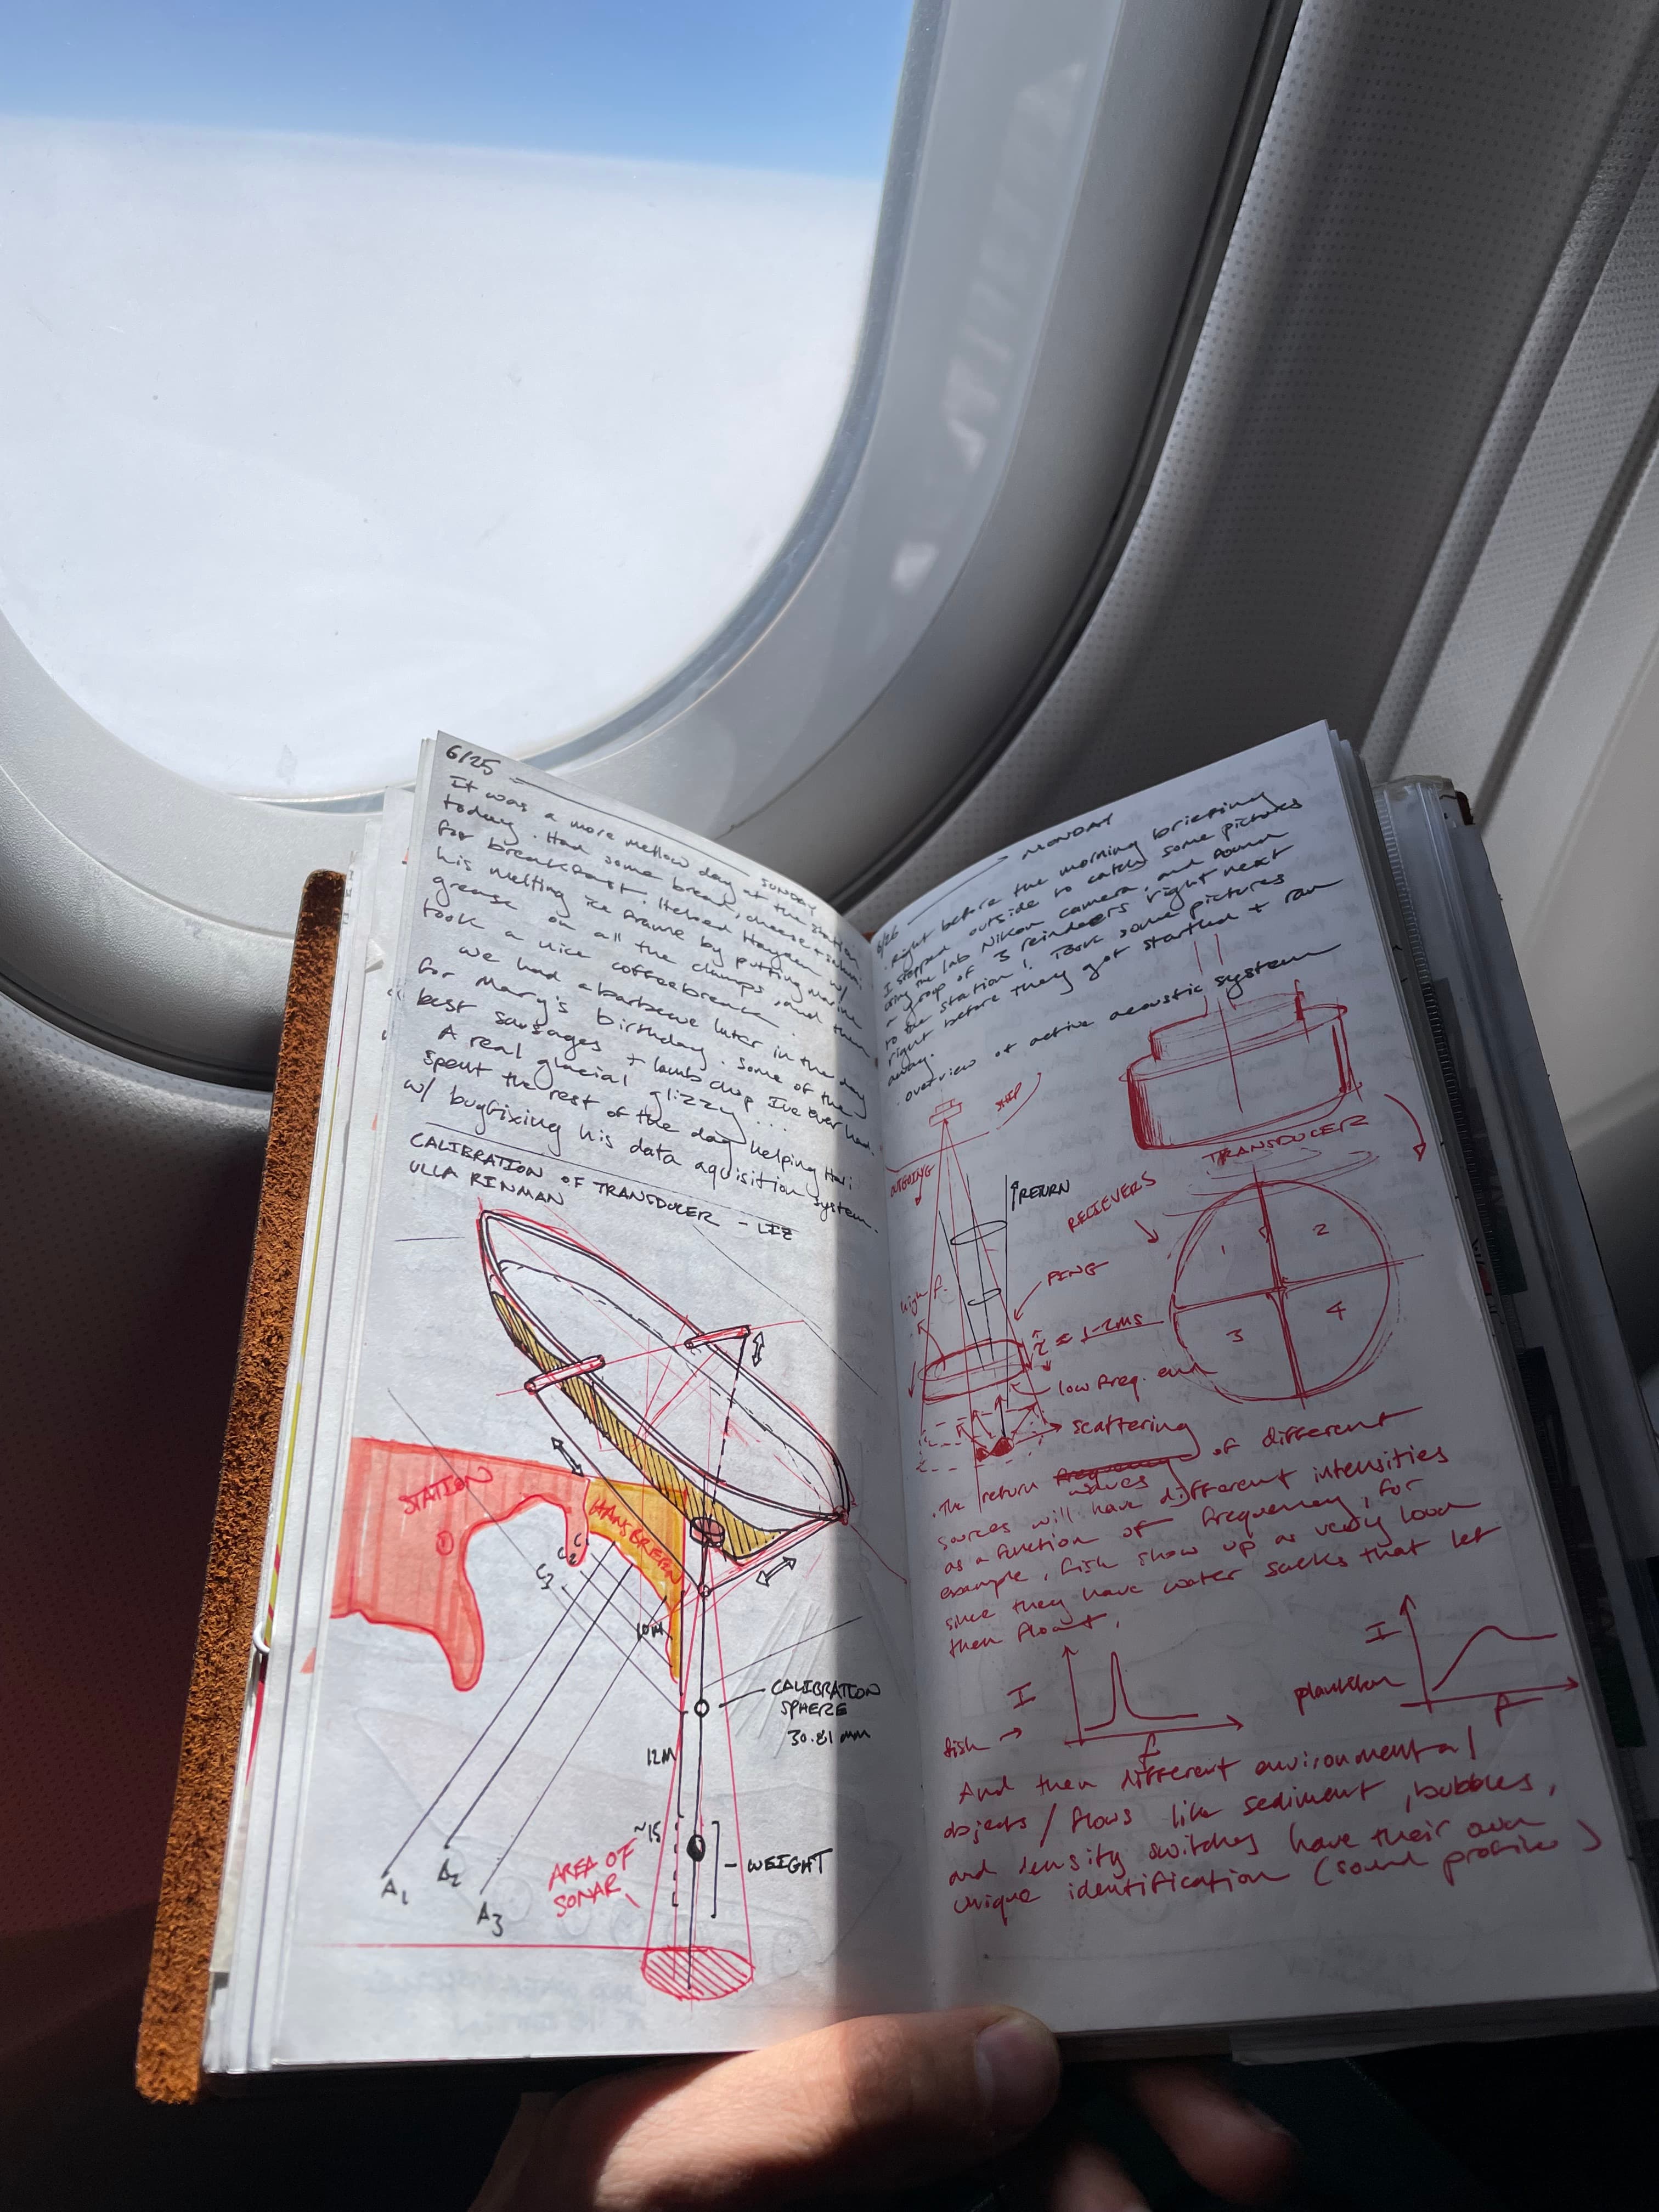 6/25 — SUNDAY
It was a more mellow day at the station
today. Had some bread, cheese + salami
for breakfast. Helped Hayden w/
his melting ice frame by putting marine
grease on all the clamps, and then
took a nice coffee break.
we had a barbecue later in the day
for Mary's birthday. Some of the
best sausages + lamb chop I've ever had.
A real glacial glizzy...
spent the rest of the day helping Hari
w/ bugfixing his data aquisition system.
CALIBRATION OF TRANSDUCER - LIZ
ULLA RINMAN
STATION
1
HANSBREEN
C1
C2
C3
10M
CALIBRATION
SPHERE
30.81 mm
12M
~15
WEIGHT
AREA OF
SONAR
A1
A2
A3
6/26 → MONDAY
Right before the morning briefing
I stepped outside to catch some pictures
using the lab Nikon camera, and found
a group of 3 reindeers right next
to the station! Took some pictures
right before they got startled + ran
away.
overview of active acoustic system
SHIP
TRANSDUCER
OUTGOING
RETURN
RECIEVERS
1
2
3
4
PING
high f.
τ ≈ 1-2ms
low freq. end
scattering
The return frequency waves of different
sources will have different intensities
as a function of frequency, for
example, fish show up as very loud
since they have water sacks that let
them float.
I
fish →
f
I
plankton
F
And then different environmental
objects / flows like sediment, bubbles,
and density switches have their own
unique identification (sound profile)